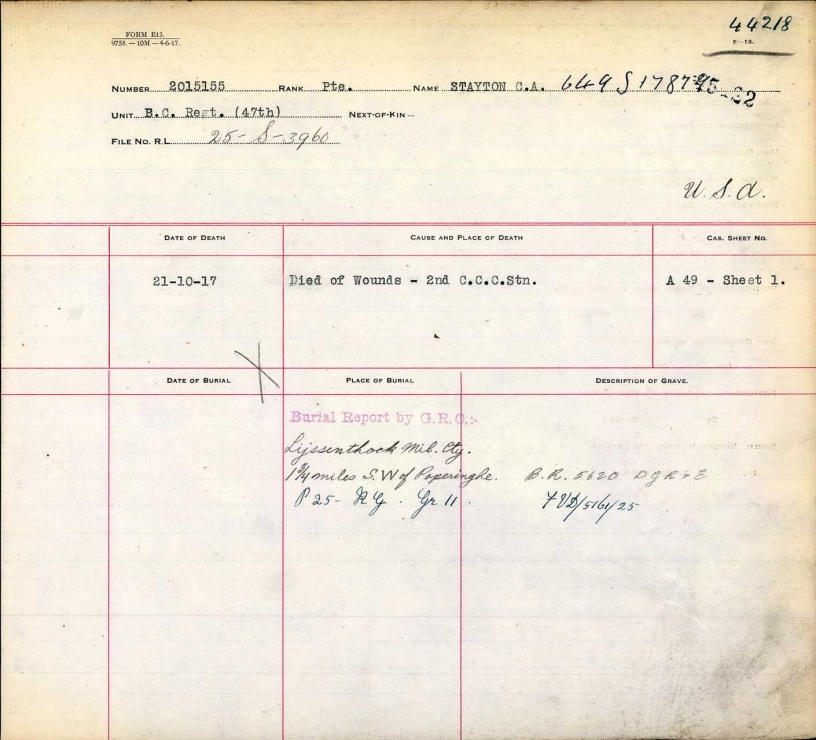 44218
FORM E13.
9758.—10M—4-6-17.
E—13.
NUMBER 2015155 RANK Pte. NAME STAYTON C.A. 649 S 178795-22
UNIT B.C. Regt. (47th) NEXT-OF-KIN—
FILE NO. R.L. 25-S-3960
U.S.A.
DATE OF DEATH CAUSE AND PLACE OF DEATH CAS. SHEET NO.
21-10-17 Died of Wounds - 2nd C.C.C.Stn. A 49 - Sheet 1.
DATE OF BURIAL PLACE OF BURIAL DESCRIPTION OF GRAVE.
Burial Report by G.R.C.:-
Lijssenthoek Mil. Cty.
1¾ miles S.W of Poperinghe. B.R. 5620 D G R & E
P 25- R G. Gr 11.